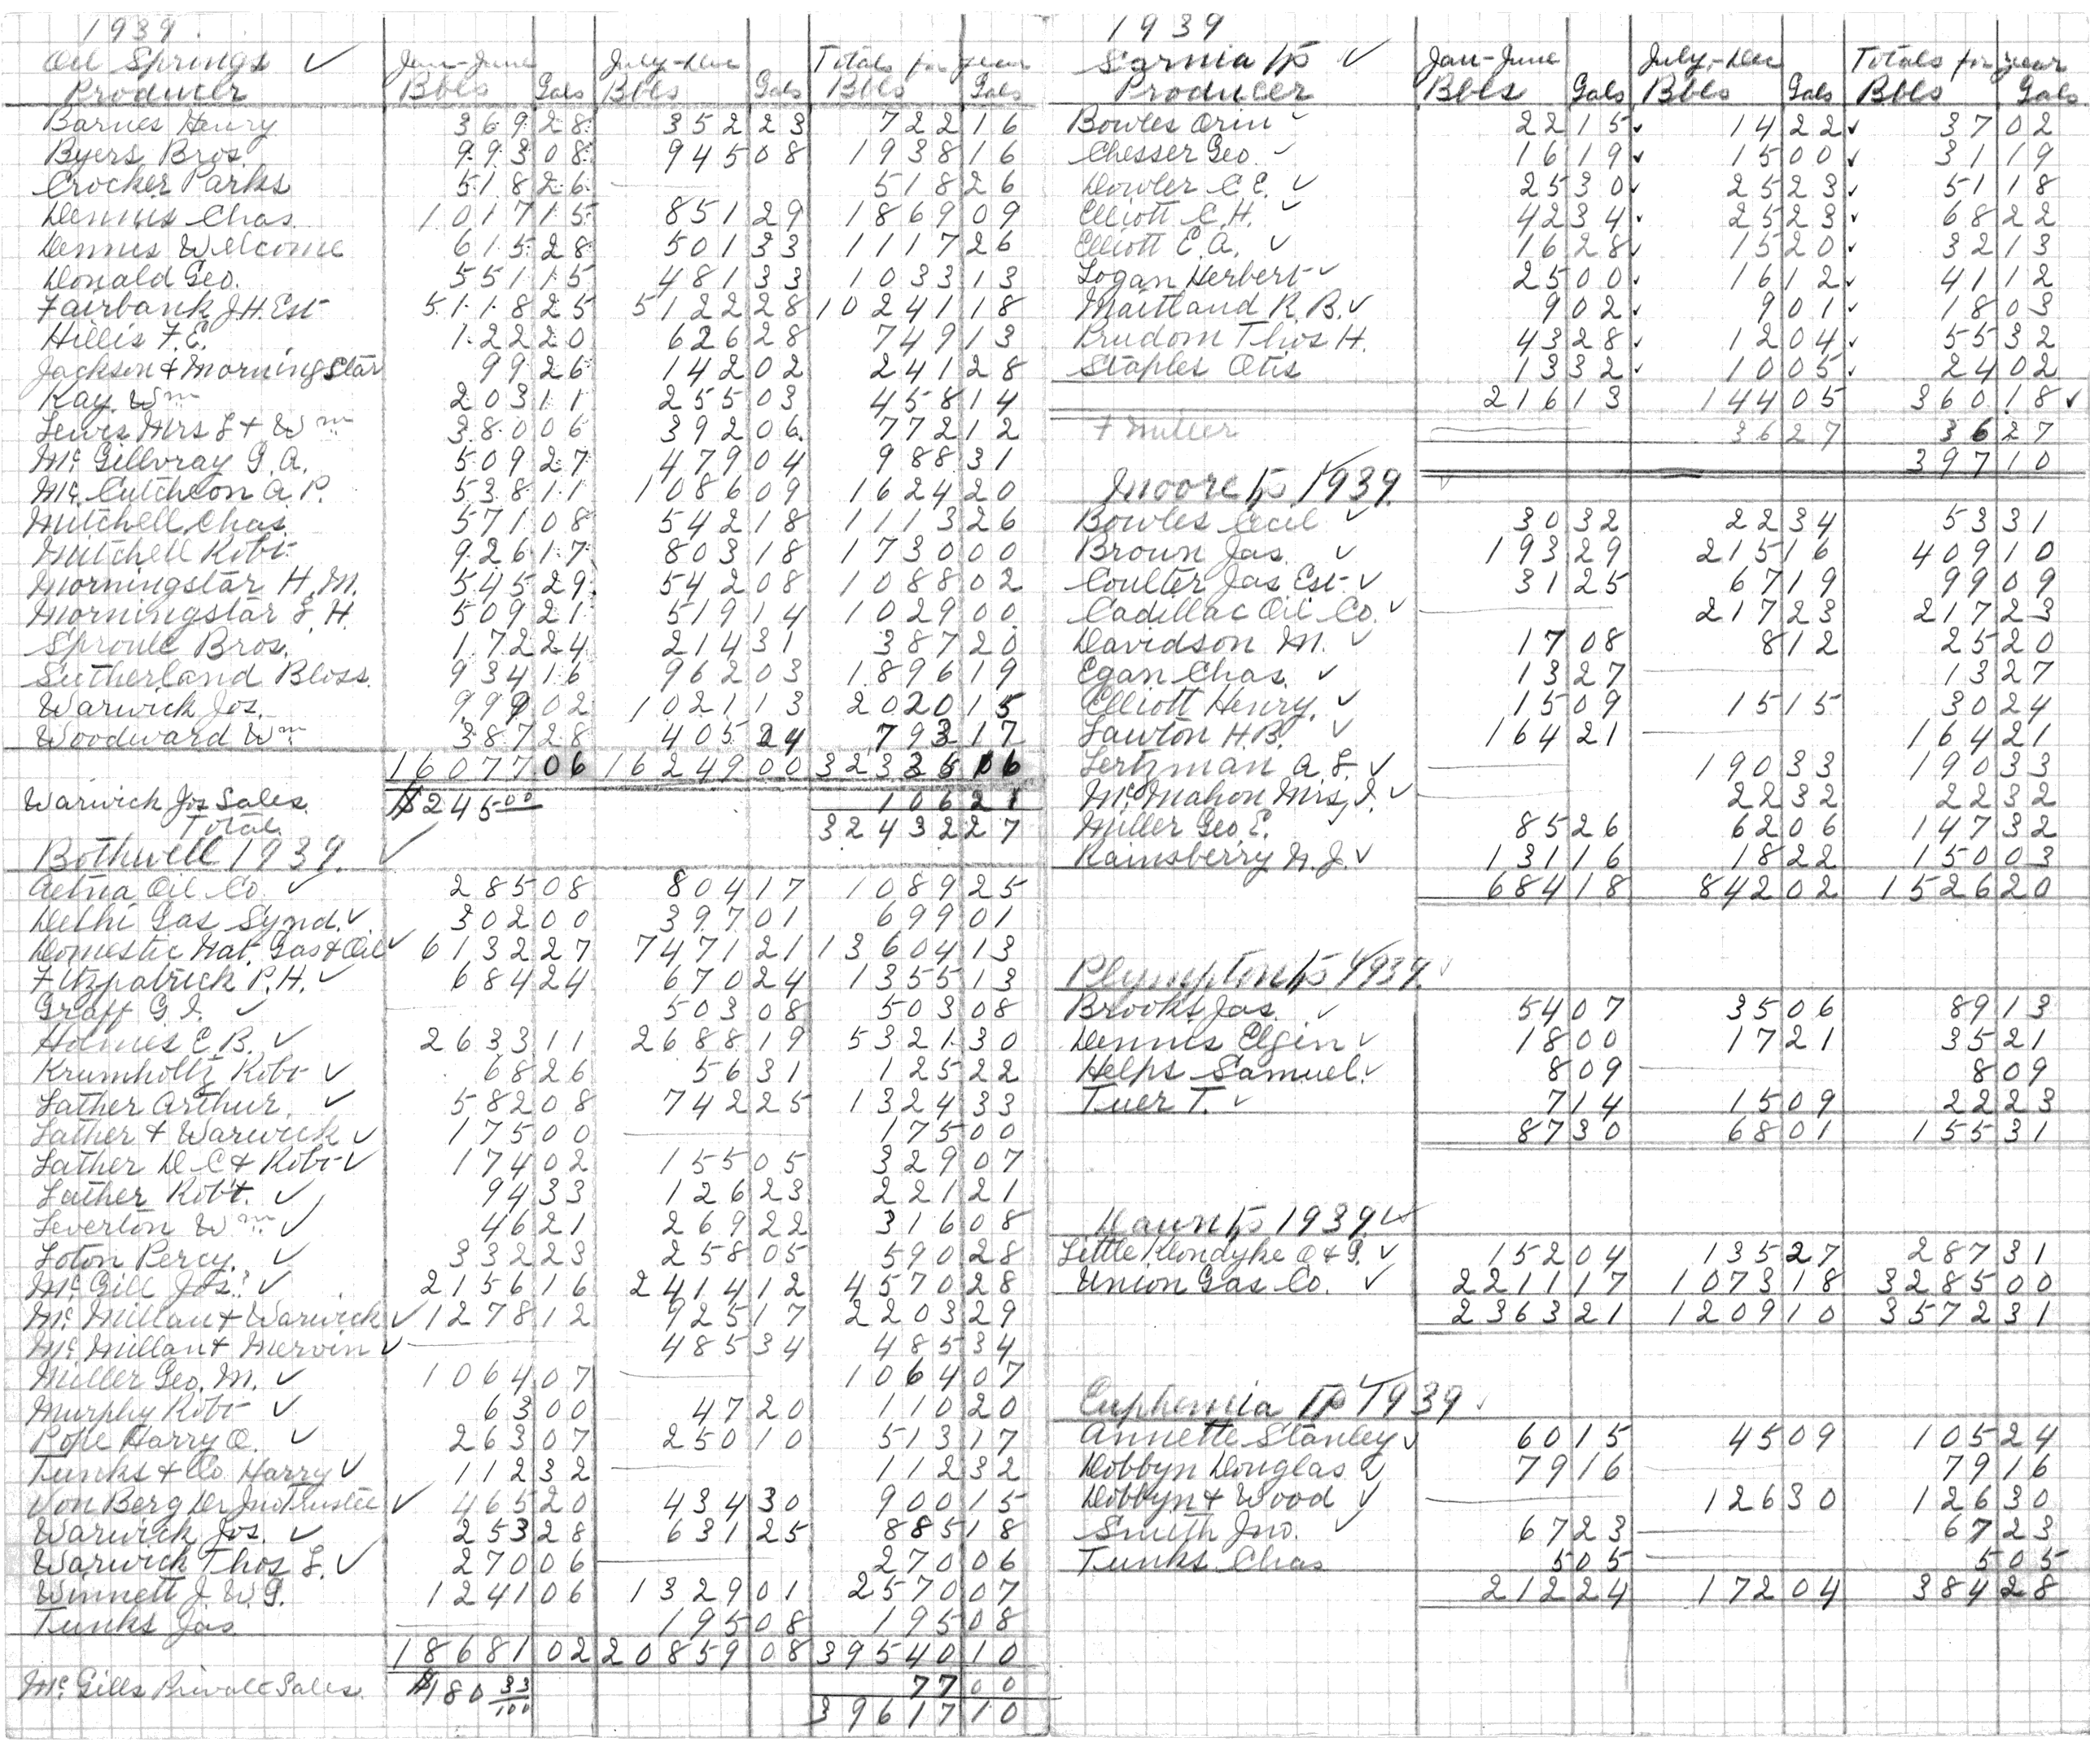 1939.
Oil Springs ✓ Jan-June July-Dec Totals for year
Producer Bbls Gals Bbls Gals Bbls Gals
Barnes Henry 369 28 352 23 722 16
Byers Bros. 993 08 945 08 1938 16
Crocker Parks 518 26 — 518 26
Dennis Chas. 1017 15 851 29 1869 09
Dennis Welcome 615 28 501 33 1117 26
Donald Geo. 551 15 481 33 1033 13
Fairbank J.H. Est 5118 25 5122 28 10241 18
Hillis F.E. 122 20 626 28 749 13
Jackson & Morningstar 99 26 142 02 241 28
Kay Wm 203 11 255 03 458 14
Lewis Mrs L & Wm 380 06 392 06 772 12
McGillvray G.A. 509 27 479 04 988 31
McCutcheon A.P. 538 11 1086 09 1624 20
Mitchell Chas. 571 08 542 18 1113 26
Mitchell Robt. 926 17 803 18 1730 00
Morningstar H.M. 545 29 542 08 1088 02
Morningstar L.H. 509 21 519 14 1029 00
Sproule Bros. 172 24 214 31 387 20
Sutherland Bloss. 934 16 962 03 1896 19
Warwick Jos. 999 02 1021 13 2020 15
Woodward Wm 387 28 405 24 793 17
16077 06 16249 00 32326 06
Warwick Jos Sales. $245.00 106 21
Total 32432 27
Bothwell 1939. ✓
Aetna Oil Co ✓ 285 08 804 17 1089 25
Delhi Gas Synd. ✓ 302 00 397 01 699 01
Domestic Nat. Gas & Oil ✓ 6132 27 7471 21 13604 13
Fitzpatrick P.H. ✓ 684 24 670 24 1355 13
Graff G.I. ✓ — 503 08 503 08
Holmes E.B. ✓ 2633 11 2688 19 5321 30
Krumholtz Robt ✓ 68 26 56 31 125 22
Lather Arthur. ✓ 582 08 742 25 1324 33
Lather & Warwick ✓ 175 00 — 175 00
Lather D.C & Robt ✓ 174 02 155 05 329 07
Lather Robt. ✓ 94 33 126 23 221 21
Leverton Wm ✓ 46 21 269 22 316 08
Loton Percy. ✓ 332 23 258 05 590 28
McGill Jos. ✓ 2156 16 2414 12 4570 28
McMillan & Warwick ✓ 1278 12 925 17 2203 29
McMillan & Mervin ✓ — 485 34 485 34
Miller Geo. M. ✓ 1064 07 — 1064 07
Murphy Robt ✓ 63 00 47 20 110 20
Pope Harry O. ✓ 263 07 250 10 513 17
Tunks & Co Harry ✓ 112 32 — 112 32
Von Berg Dr Jno Trustee ✓ 465 20 434 30 900 15
Warwick Jos. ✓ 253 28 631 25 885 18
Warwick Thos L. ✓ 270 06 — 270 06
Winnett J.W.G. 1241 06 1329 01 2570 07
Tunks Jas — 195 08 195 08
18681 02 20859 08 39540 10
McGills Private Sales. $180 33/100 77 00
39617 10
1939
Sarnia Tp ✓ Jan-June July-Dec Totals for year
Producer Bbls Gals Bbls Gals Bbls Gals
Bowles Orin ✓ 22 15 ✓ 14 22 ✓ 37 02
Chesser Geo. ✓ 16 19 ✓ 15 00 ✓ 31 19
Dowler C.E. ✓ 25 30 ✓ 25 23 ✓ 51 18
Elliott C.H. ✓ 42 34 ✓ 25 23 ✓ 68 22
Elliott E.A. ✓ 16 28 ✓ 15 20 ✓ 32 13
Logan Herbert ✓ 25 00 ✓ 16 12 ✓ 41 12
Maitland R.B. ✓ 9 02 ✓ 9 01 ✓ 18 03
Prudom Thos H. 43 28 ✓ 12 04 ✓ 55 32
Staples Otis 13 32 ✓ 10 05 ✓ 24 02
216 13 144 05 360 18 ✓
F Miller — 36 27 36 27
397 10
Moore Tp 1939. ✓
Bowles Cecil ✓ 30 32 22 34 53 31
Brown Jas. ✓ 193 29 215 16 409 10
Coulter Jas Est ✓ 31 25 67 19 99 09
Cadillac Oil Co. ✓ — 217 23 217 23
Davidson M. ✓ 17 08 8 12 25 20
Egan Chas. ✓ 13 27 — 13 27
Elliott Henry. ✓ 15 09 15 15 30 24
Lawton H.B. ✓ 164 21 — 164 21
Lertzman A.L. ✓ — 190 33 190 33
McMahon Mrs J. ✓ — 22 32 22 32
Miller Geo E. 85 26 62 06 147 32
Rainsberry N.J. ✓ 131 16 18 22 150 03
684 18 842 02 1526 20
Plympton Tp 1939. ✓
Brooks Jas. ✓ 54 07 35 06 89 13
Dennis Elgin ✓ 18 00 17 21 35 21
Helps Samuel. ✓ 8 09 — 8 09
Tuer T. ✓ 7 14 15 09 22 23
87 30 68 01 155 31
Dawn Tp 1939 ✓
Little Klondyke O & G. ✓ 152 04 135 27 287 31
Union Gas Co. ✓ 2211 17 1073 18 3285 00
2363 21 1209 10 3572 31
Euphemia Tp 1939 ✓
Annette Stanley ✓ 60 15 45 09 105 24
Dobbyn Douglas ✓ 79 16 — 79 16
Dobbyn & Wood ✓ — 126 30 126 30
Smith Jno. ✓ 67 23 — 67 23
Tunks Chas 5 05 — 5 05
212 24 172 04 384 28